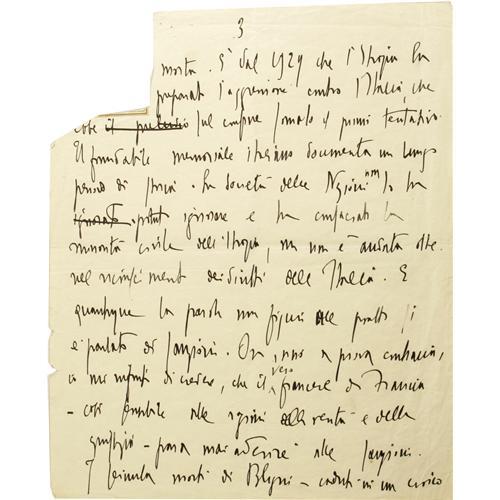 3
morta. È dal 1929 che l'Etiopia ha
preparato l'aggressione contro l'Italia, che
ebbe il preludio sul confine somalo i primi tentativi.
Il formidabile memoriale italiano documenta un lungo
periodo di storia. La Società delle Nazioni non lo ha
ignorato potuto ignorare e ha constatato la
minorità civile dell'Etiopia, ma non è andata oltre
nel riconoscimento dei diritti dell'Italia. E
quantunque la parola non figuri nel patto si
è parlato di sanzioni. Ora, sino a prova contraria,
io mi rifiuto di credere, che il vero francese di Francia
- così sensibile alle ragioni della verità e della
giustizia - possa mai aderire alle sanzioni.
I morti di - caduti in un